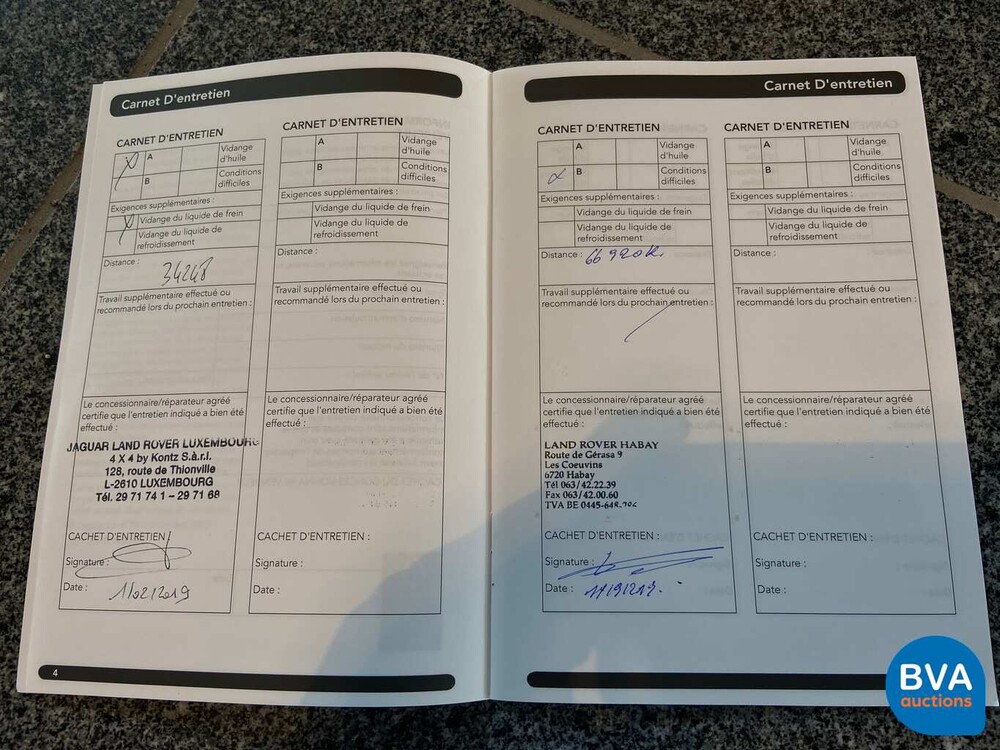 Carnet D'entretien
CARNET D'ENTRETIEN
A
Vidange
d'huile
B
Conditions
difficiles
Exigences supplémentaires :
Vidange du liquide de frein
Vidange du liquide de
refroidissement
Distance :
34248
Travail supplémentaire effectué ou
recommandé lors du prochain entretien :
Le concessionnaire/réparateur agréé
certifie que l'entretien indiqué a bien été
effectué :
JAGUAR LAND ROVER LUXEMBOURG
4 X 4 by Kontz S.à.r.l.
128, route de Thionville
L-2610 LUXEMBOURG
Tél. 29 71 74 1 – 29 71 68
CACHET D'ENTRETIEN
Signature :
Date :
CARNET D'ENTRETIEN
A
Vidange
d'huile
B
Conditions
difficiles
Exigences supplémentaires :
Vidange du liquide de frein
Vidange du liquide de
refroidissement
Distance :
Travail supplémentaire effectué ou
recommandé lors du prochain entretien :
Le concessionnaire/réparateur agréé
certifie que l'entretien indiqué a bien été
effectué :
CACHET D'ENTRETIEN :
Signature :
Date :
4
Carnet D'entretien
CARNET D'ENTRETIEN
A
Vidange
d'huile
B
Conditions
difficiles
Exigences supplémentaires :
Vidange du liquide de frein
Vidange du liquide de
refroidissement
Distance : 66 920k.
Travail supplémentaire effectué ou
recommandé lors du prochain entretien :
Le concessionnaire/réparateur agréé
certifie que l'entretien indiqué a bien été
effectué :
LAND ROVER HABAY
Route de Gérasa 9
Les Coeuvins
6720 Habay
Tél 063/42.22.39
Fax 063/42.00.60
TVA BE 0445-648
CACHET D'ENTRETIEN :
Signature :
Date :
CARNET D'ENTRETIEN
A
Vidange
d'huile
B
Conditions
difficiles
Exigences supplémentaires :
Vidange du liquide de frein
Vidange du liquide de
refroidissement
Distance :
Travail supplémentaire effectué ou
recommandé lors du prochain entretien :
Le concessionnaire/réparateur agréé
certifie que l'entretien indiqué a bien été
effectué :
CACHET D'ENTRETIEN :
Signature :
Date :
BVA
auctions